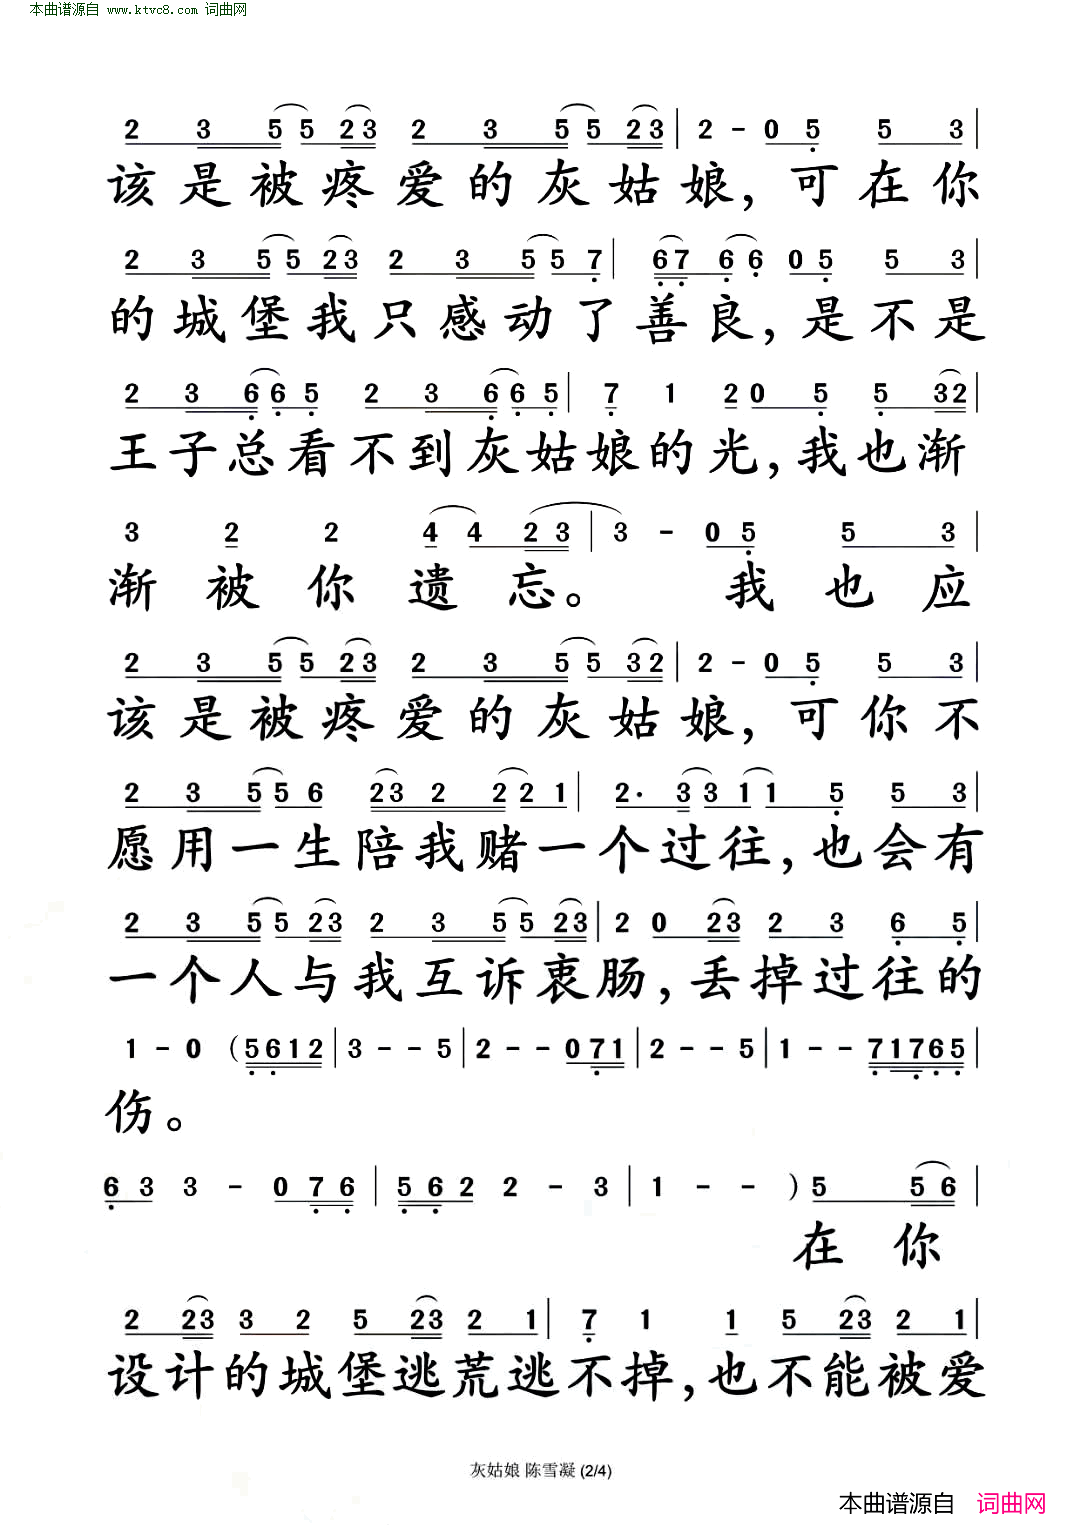 本曲谱源自 www.ktvc8.com 词曲网
2 3 5 5 2 3 2 3 5 5 2 3 | 2 - 0 5 5 3 |
该是被疼爱的灰姑娘，可在你
2 3 5 5 2 3 2 3 5 5 7 | 6 7 6 6 0 5 5 3 |
的城堡我只感动了善良，是不是
2 3 6 6 5 2 3 6 6 5 | 7 1 2 0 5 5 3 2 |
王子总看不到灰姑娘的光，我也渐
3 2 2 4 4 2 3 | 3 - 0 5 5 3 |
渐被你遗忘。 我也应
2 3 5 5 2 3 2 3 5 5 3 2 | 2 - 0 5 5 3 |
该是被疼爱的灰姑娘，可你不
2 3 5 5 6 2 3 2 2 2 1 | 2 · 3 3 1 1 5 5 3 |
愿用一生陪我赌一个过往，也会有
2 3 5 5 2 3 2 3 5 5 2 3 | 2 0 2 3 2 3 6 5 |
一个人与我互诉衷肠，丢掉过往的
1 - 0 （5 6 1 2 | 3 - - 5 | 2 - - 0 7 1 | 2 - - 5 | 1 - - 7 1 7 6 5 |
伤。
6 3 3 - 0 7 6 | 5 6 2 2 - 3 | 1 - - ）5 5 6 |
在你
2 2 3 3 2 5 2 3 2 1 | 7 1 1 5 2 3 2 1 |
设计的城堡逃荒逃不掉，也不能被爱
灰姑娘 陈雪凝 (2/4)
本曲谱源自 词曲网